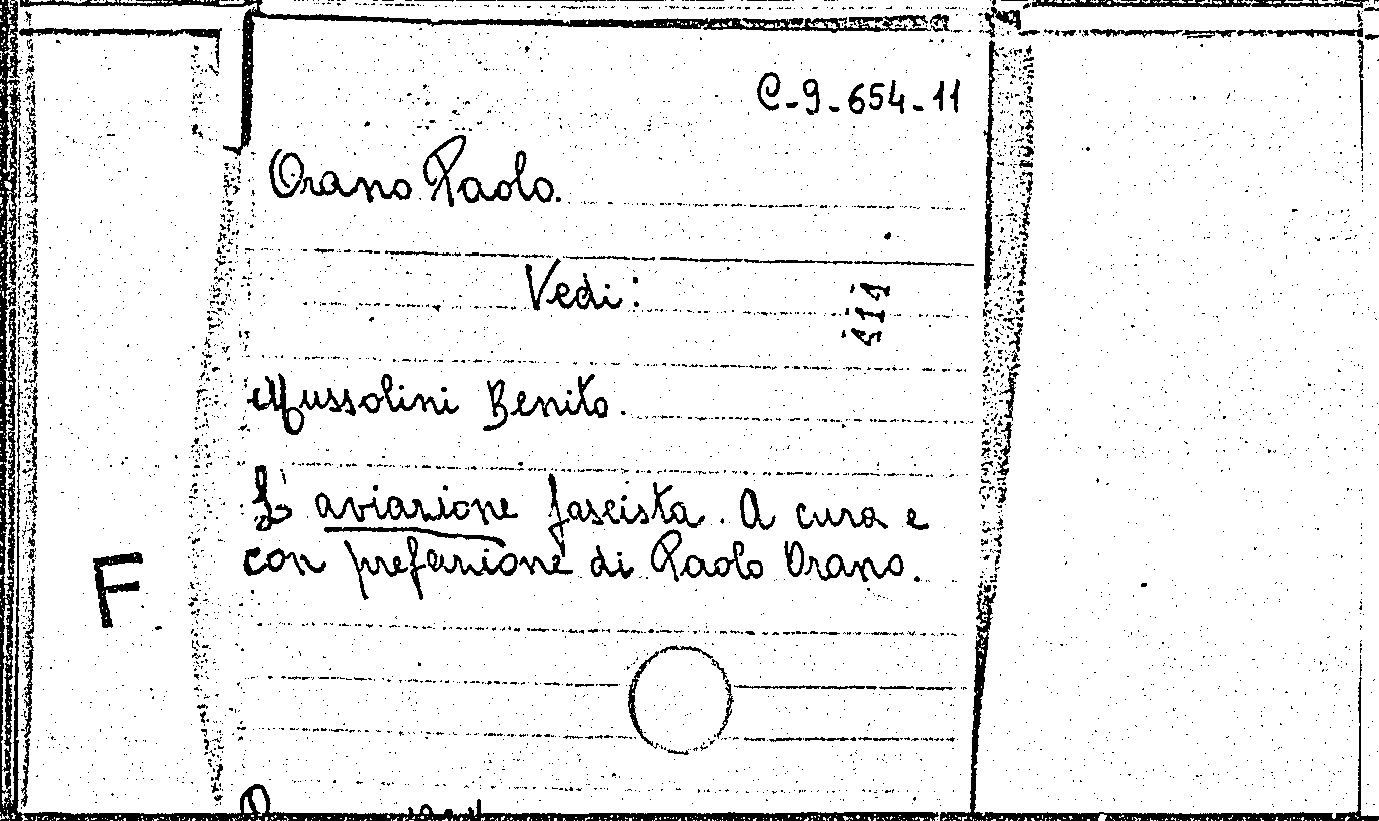 C-9-654-11
Orano Paolo.
Vedi:
Mussolini Benito.
L'aviazione fascista. A cura e
con prefazione di Paolo Orano.
F